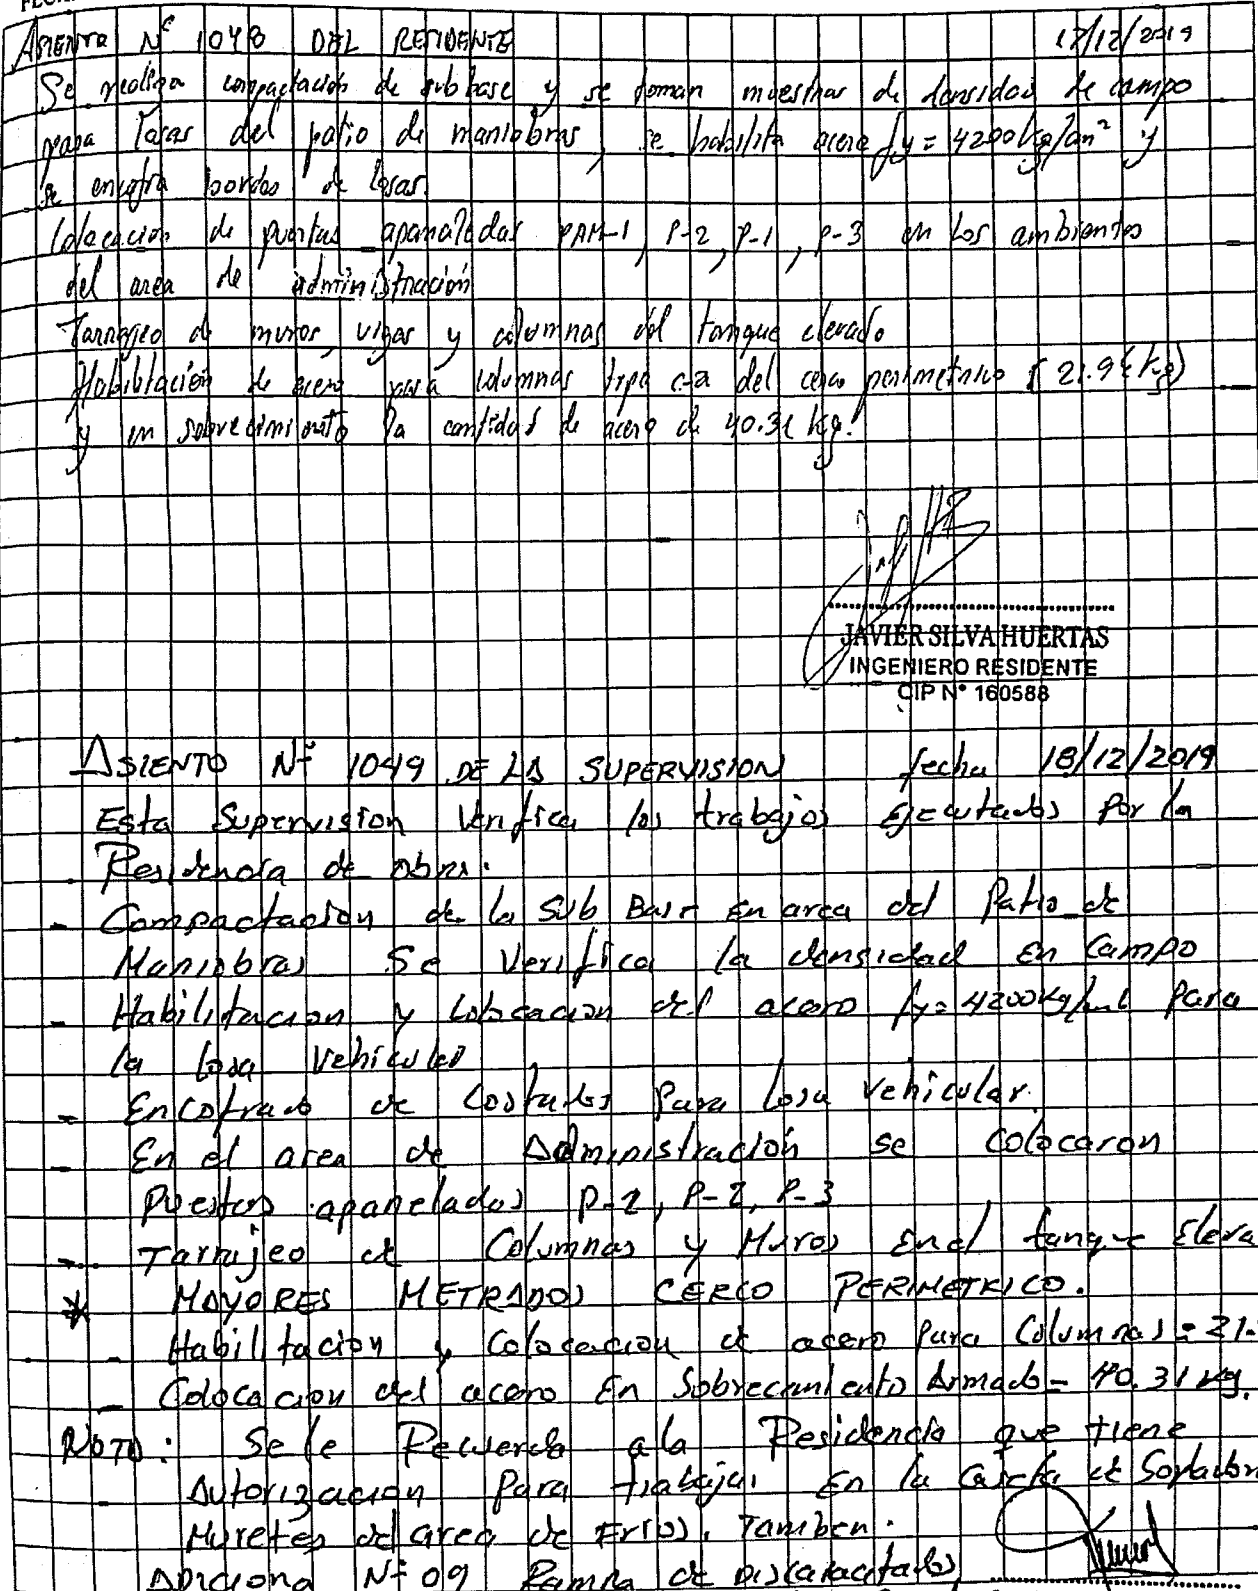 ASIENTO N° 1048 DEL RESIDENTE 17/12/2019
Se realiza compactación de sub base y se toman muestras de densidad de campo
para losas del patio de maniobras, se habilita acero fy = 4200 kg/cm² y
se encofra bordes de losas.
Colocacion de puertas apaneladas PAM-1, P-2, P-1, P-3 en los ambientes
del area de administración
Tarrajeo de muros, vigas y columnas del tanque elevado
Habilitación de acero para columnas tipo c-2 del cerco perimetrico
y en sobrecimiento la cantidad de acero de 40.31 kg.
JAVIER SILVA HUERTAS
INGENIERO RESIDENTE
CIP N° 160588
ASIENTO Nº 1049 DE LA SUPERVISION fecha 18/12/2019
Esta Supervision Verifica los trabajos Ejecutados Por la
Residencia de obra.
- Compactacion de la Sub Base en area del Patio de
Maniobras Se Verifica la densidad En Campo
- Habilitacion y Colocacion del acero fy = 4200 Para
la losa Vehicular
- Encofrado de Costados Para losa vehicular.
- En el area de Administración se Colocaron
Puertas apanelados P-2, P-3
- Tarrajeo de Columnas y Muros En el tanque Eleva
* MAYORES METRADOS CERCO PERIMETRICO.
- Habilitacion y Colocacion de acero Para Columnas = 21.
- Colocacion del acero En Sobrecimiento Armado = 40.31 Kg.
NOTA: Se le Recuerda a la Residencia que tiene
Autorizacion Para trabajar En la Caseta de
Muretes del area de Frios. Tambien.
Adiciona Nº 09 Rampa de Discapacitados